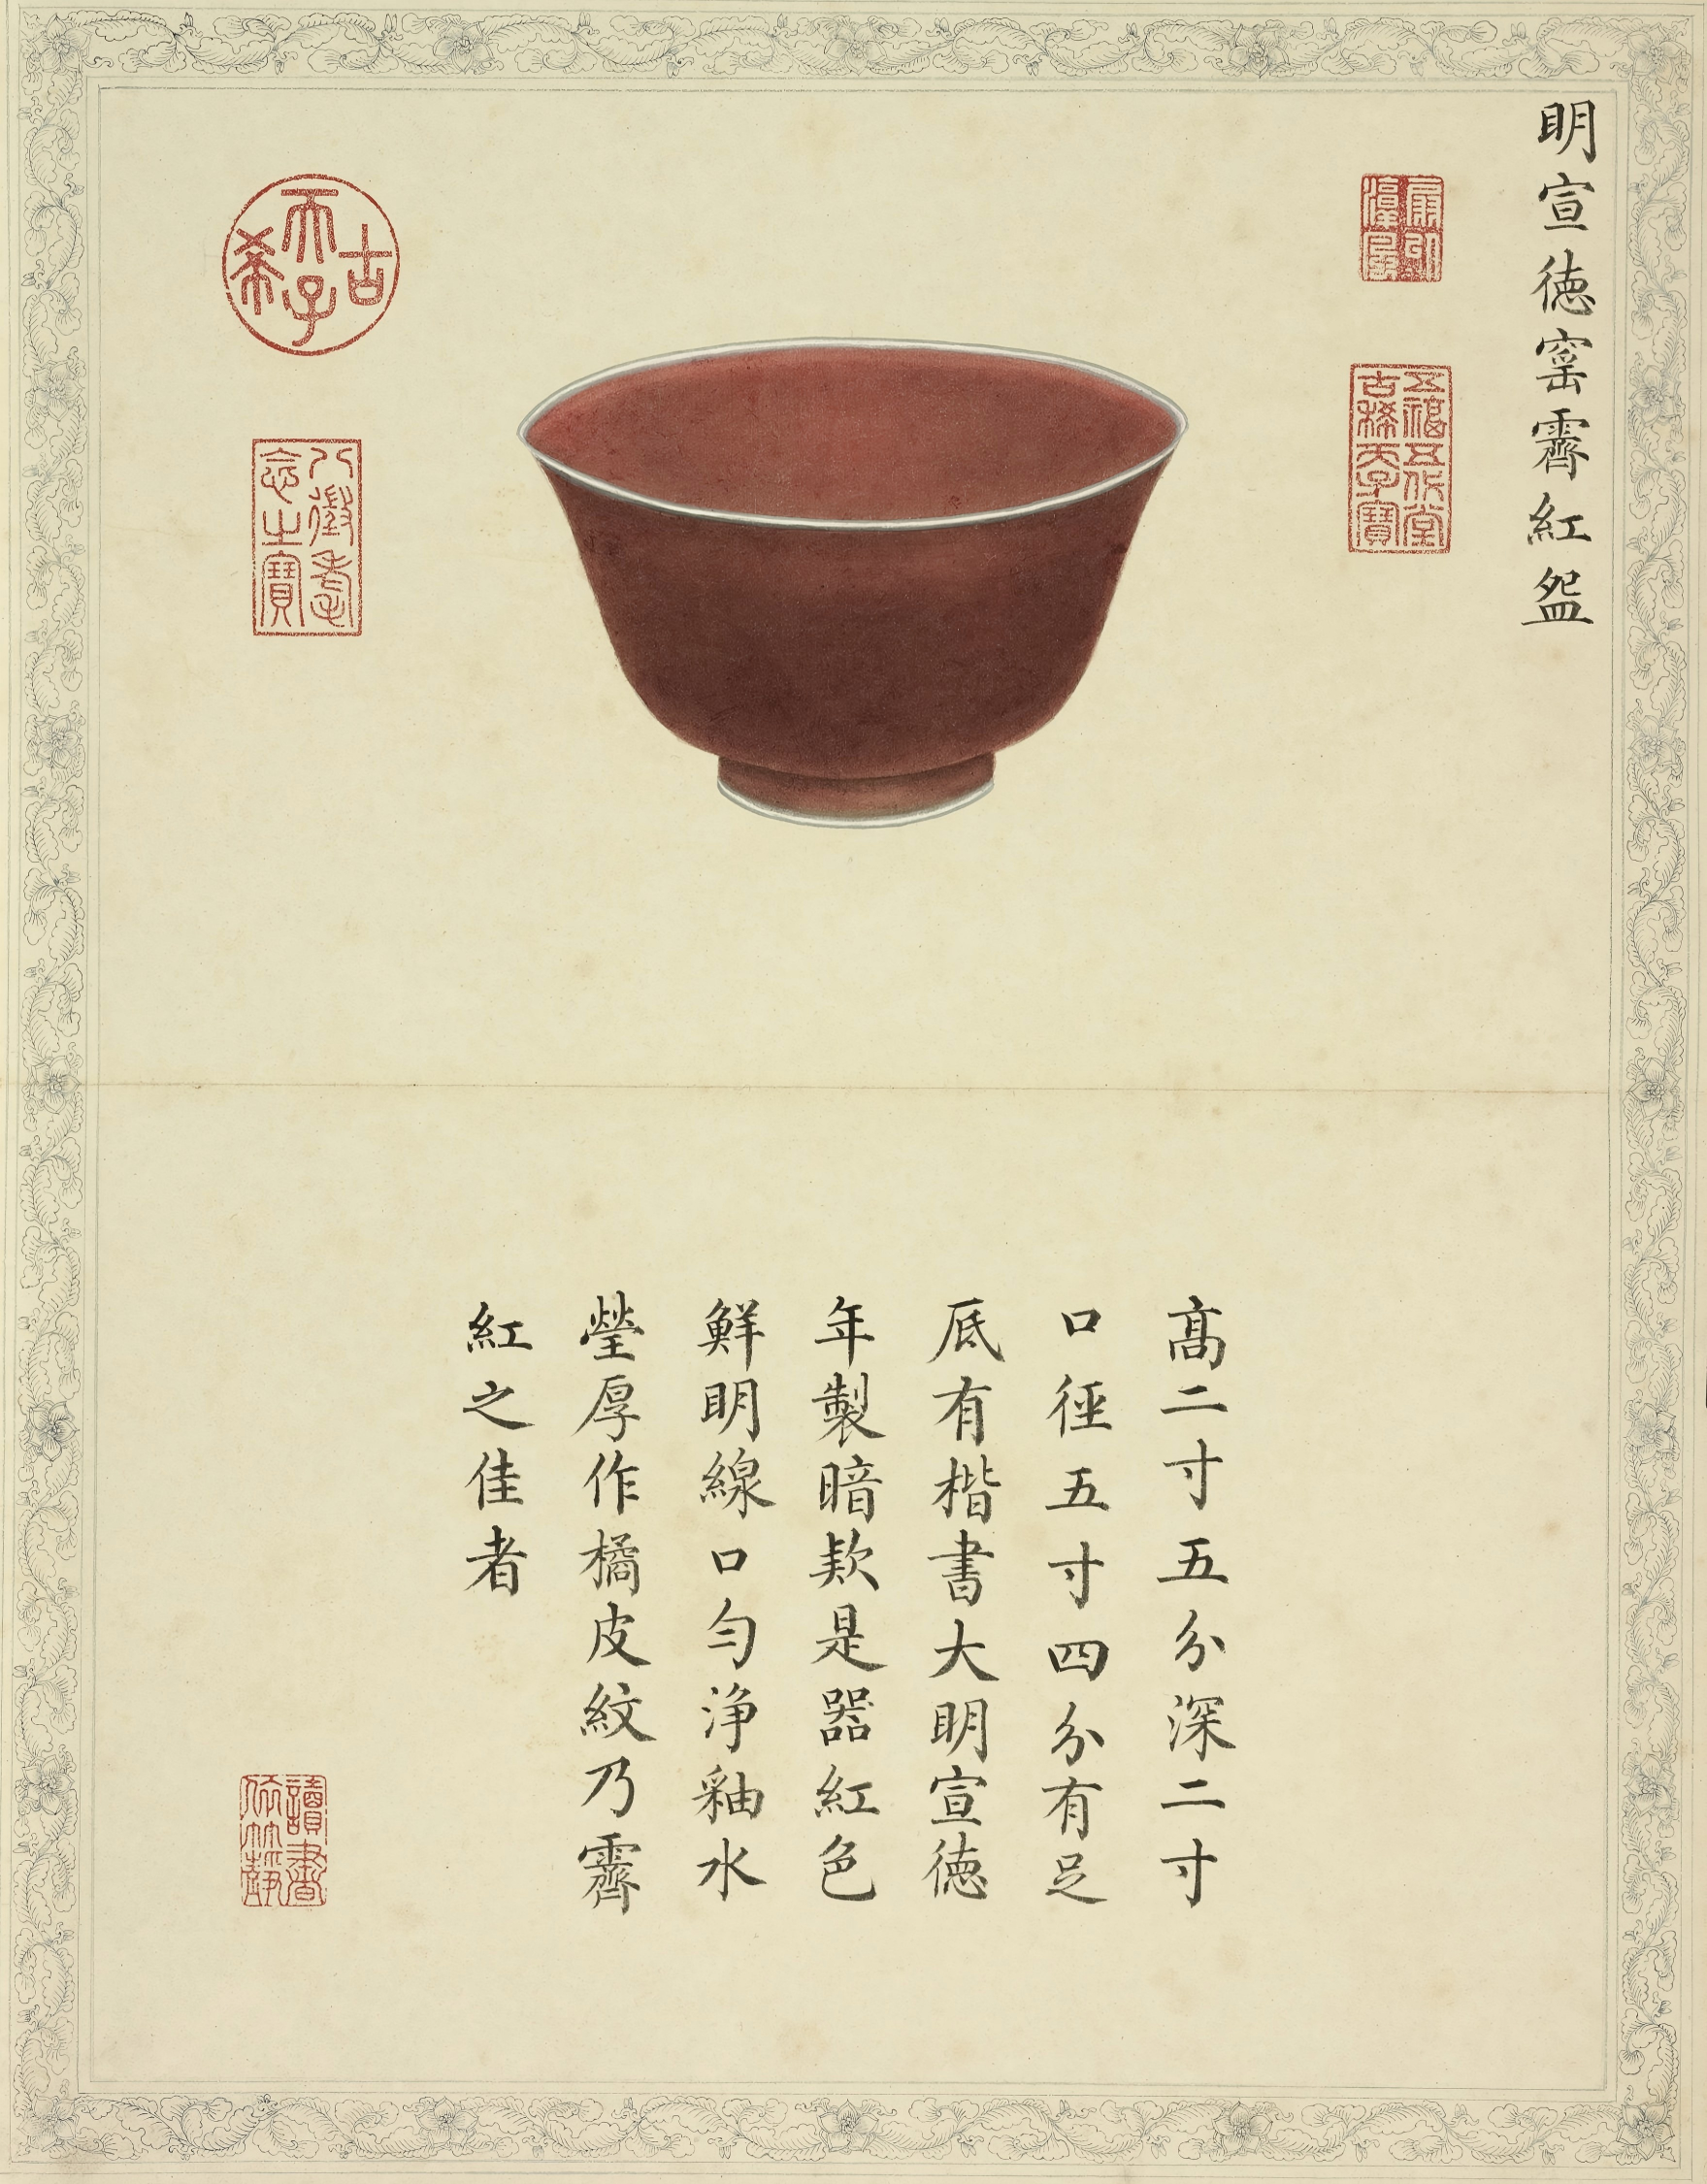 明宣徳窑霽紅盌
五福五代堂
古稀天子寶
古希天子
八徵耄
念之寶
高二寸五分深二寸
口徑五寸四分有足
底有楷書大明宣徳
年製暗款是器紅色
鮮明線口勻淨釉水
瑩厚作橘皮紋乃霽
紅之佳者